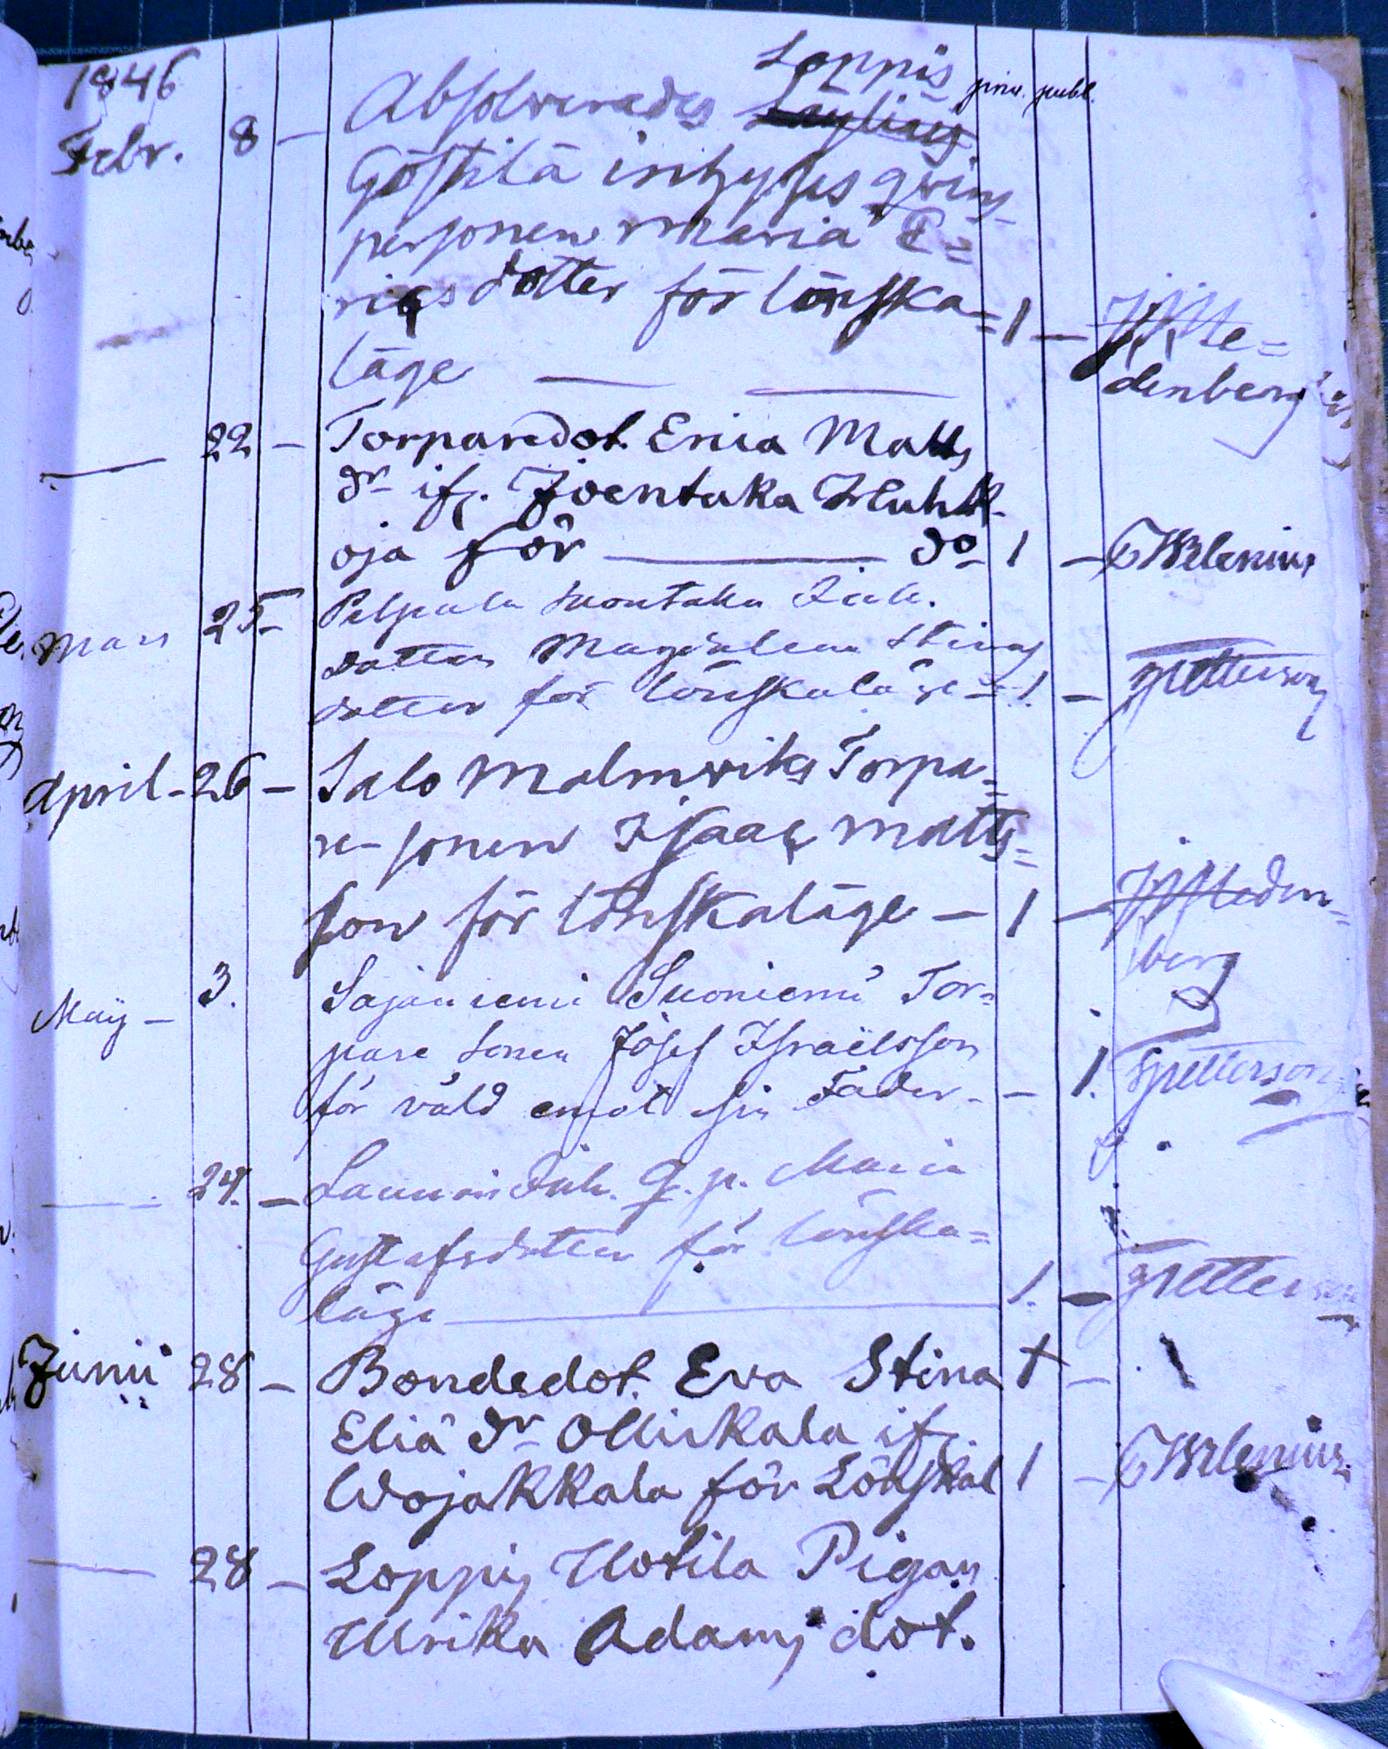 1846 Loppis priv. publ.
Febr. 8 — Absolverades
Göstilä inhyses qvins
personen Maria E=
ricsdotter för lönska= 1 —
läge — — denberg
— 22 — Torparedot. Erica Matts
dr ifr. Joentaka
oja för — do 1 — Wilenius
Mars 25
dotter Magdalena Stina
dotter för lönskaläge — 1 — Petterson
April 26 — Salo Malmwiks Torpa=
re sonen Isaac Matts=
son för lönskaläge — 1 —
berg
May — 3. Sajaniemi Suoniemi Tor=
pare sonen Josef Israelsson
för våld emot sin Fader — 1. Petterson
— 24. — Q. p. Maria
Gustafsdotter för lönska=
läge — 1. — Petterson
Junii 28 — Bondedot. Eva Stina
Eliä dr Ollikkala ifr.
Wojakkala för Lönskal 1 — Wilenius
— 28 — Loppis Uotila Pigan
Ulrika Adams dot.